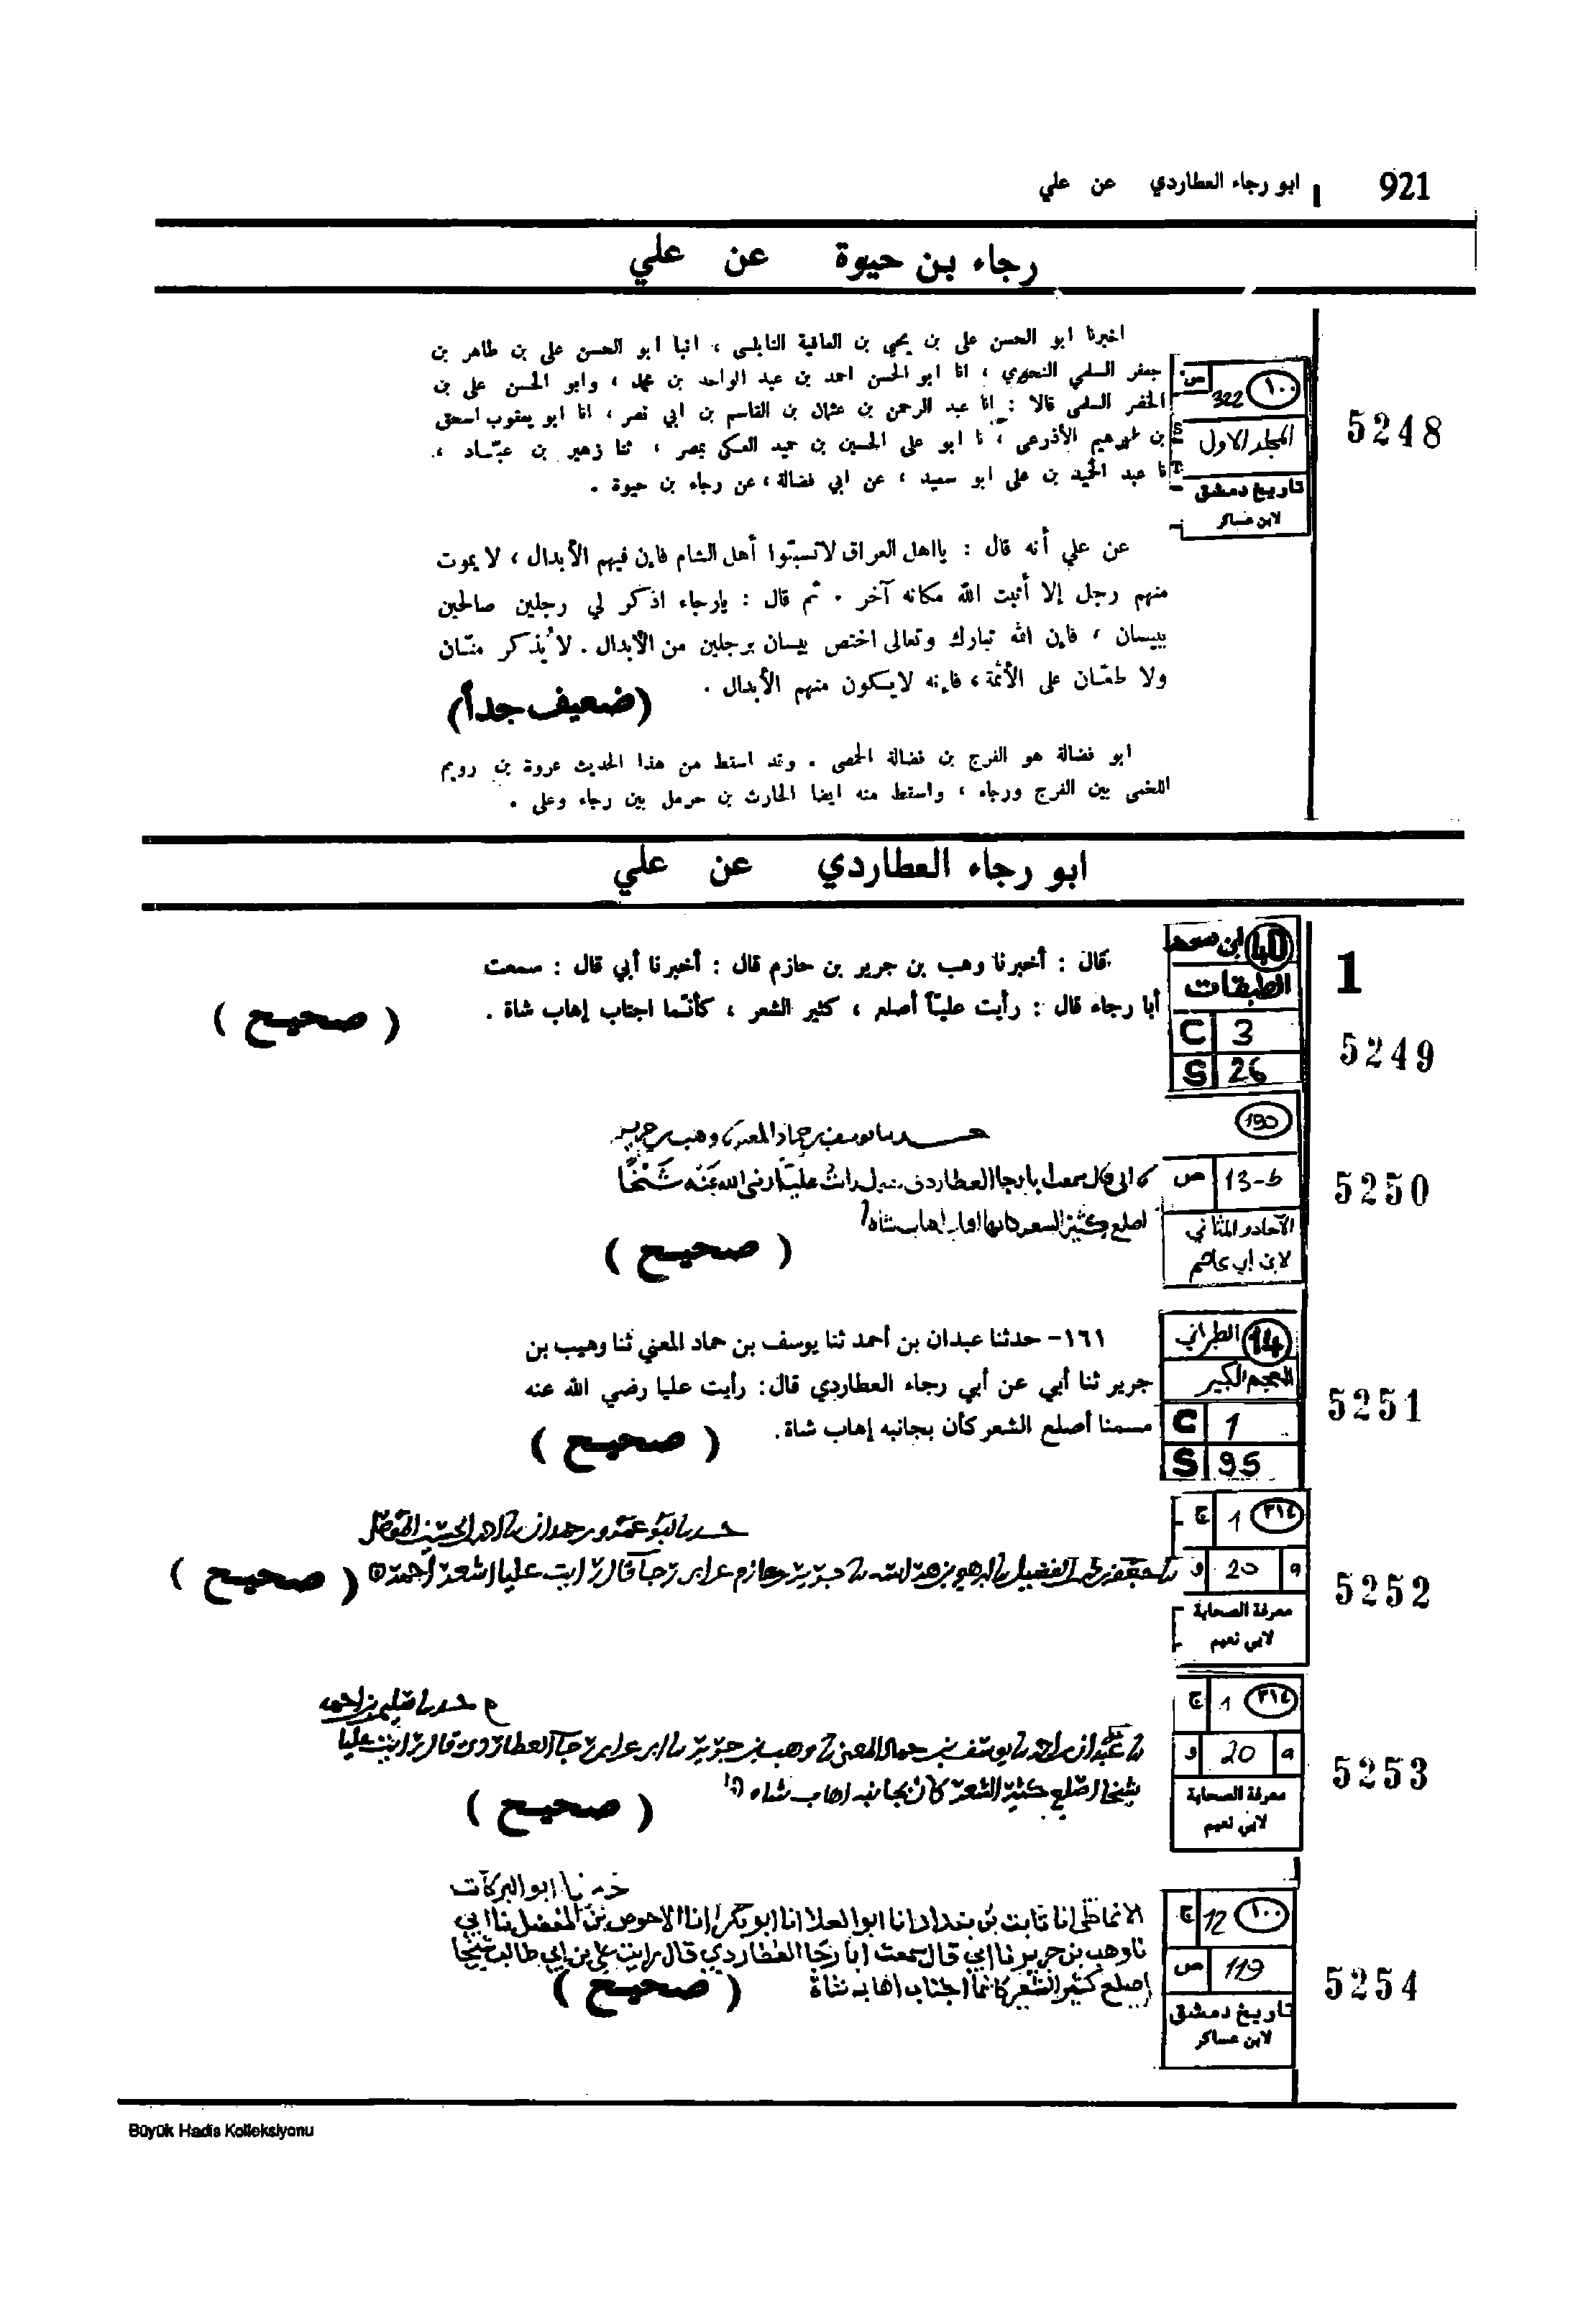 921
ابو رجاء العطاردي عن علي
رجاء بن حيوة عن علي
5248
١٠٠ ص 322
المجلد الاول
تاريخ دمشق
لابن عساكر
اخبرنا ابو الحسن على بن يحيي بن العافية النابلسى ، انبا ابو الحسن على بن طاهر بن
جعفر السلمي النحوي ، انا ابو الحسن احمد بن عبد الواحد بن محمد ، وابو الحسن على بن
الخضر السلمى قالا : انا عبد الرحمن بن عثمان بن القاسم بن ابي نصر ، انا ابو يعقوب اسحق
بن ابرهيم الأذرعى ، نا ابو على الحسين بن حميد العكى بمصر ، ثنا زهير بن عبّاد ،
نا عبد الحميد بن على ابو سعيد ، عن ابي فضالة ، عن رجاء بن حيوة .
عن علي أنه قال : يااهل العراق لاتسبّوا أهل الشام فإن فيهم الأبدال ، لا يموت
منهم رجل إلا أثبت الله مكانه آخر . ثم قال : يارجاء اذكر لي رجلين صالحين
ببيسان ، فإن الله تبارك وتعالى اختص بيسان برجلين من الأبدال . لا يُذكر منّان
ولا طعّان على الأئمة ، فإنه لايكون منهم الأبدال .
(ضعيف جداً)
ابو فضالة هو الفرج بن فضالة الحمصى . وقد اسقط من هذا الحديث عروة بن رويم
اللخمى بين الفرج ورجاء ، واسقط منه ايضا الحارث بن حرمل بين رجاء وعلى .
ابو رجاء العطاردي عن علي
1
5249
40 ابن سعد
الطبقات
C 3
S 26
قال : أخبرنا وهب بن جرير بن حازم قال : أخبرنا أبي قال : سمعت
أبا رجاء قال : رأيت عليّاً أصلع ، كثير الشعر ، كأنّما اجتاب إهاب شاة .
( صحيح )
5250
190
ص 13-b
الآحاد والمثاني
لابن ابي عاصم
يوسف بن حماد المعنى وهب بن جرير
ابى قال سمعت ابا رجا العطاردى يقول رايت عليا رضى الله عنه شيخا
اصلع كثير الشعر كانما اهاب شاه
( صحيح )
5251
14 الطبراني
المعجم الكبير
C 1
S 95
١٦١- حدثنا عبدان بن أحمد ثنا يوسف بن حماد المعني ثنا وهيب بن
جرير ثنا أبي عن أبي رجاء العطاردي قال: رأيت عليا رضي الله عنه
مسمنا أصلع الشعر كأن بجانبه إهاب شاة.
( صحيح )
5252
٣١٤ 1 ج
a 20 و
معرفة الصحابة
لابي نعيم
حدثنا ابو عمرو بن حمدان
( صحيح )
5253
٣١٤ 1 ج
a 20 و
معرفة الصحابة
لابي نعيم
حدثنا سليمن بن احمد
عبدان بن احمد يوسف بن حماد المعنى وهب بن جرير ابى عن ابى رجا العطاردى قال رايت عليا
شيخا اصلع كثير الشعر كان بجانبه اهاب شاه
( صحيح )
5254
١٠٠ 12 ج
ص 119
تاريخ دمشق
لابن عساكر
ابو البركات
الانماطى انا ثابت بن بندار انا ابو العلا انا ابو بكر انا الاحوص بن المفضل نا ابي
نا وهب بن جرير نا ابي قال سمعت ابا رجا العطاردي قال رايت علي بن ابي طالب شيخا
اصلع كثير الشعر كانما اجتاب اهاب شاة
( صحيح )
Büyük Hadis Kolleksiyonu